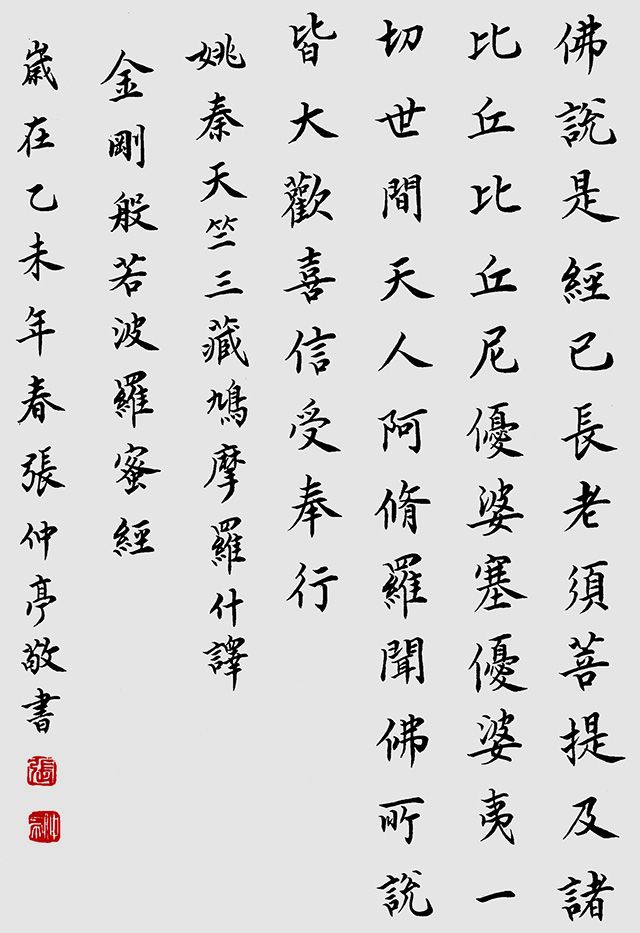 佛說是經已長老須菩提及諸
比丘比丘尼優婆塞優婆夷一
切世間天人阿脩羅聞佛所說
皆大歡喜信受奉行
姚秦天竺三藏鳩摩羅什譯
金剛般若波羅蜜經
歲在乙未年春張仲亭敬書
張